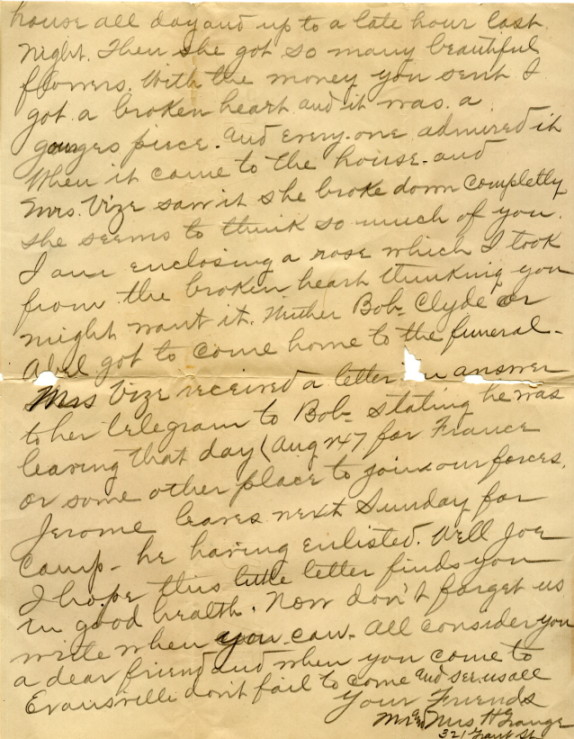 house all day and up to a late hour last
night. Then she got so many beautiful
flowers. With the money you sent I
got a broken heart and it was a
gourges piece. and every-one admired it
When it came to the house- and
Mrs. Vize saw it she broke down completly
she seems to think so much of you.
I am enclosing a rose which I took
from the broken heart thinking you
might want it. Niether Bob- Clyde or
Abel got to come home to the funeral-
Mrs Vize received a letter in answer
to her telegram to Bob- stating he was
leaving that day (Aug for France
or some other place to join our forces.
Jerome leaves next Sunday for
Camp- he having enlisted. Well Joe
I hope this little letter finds you
in good health. Now don't forget us
write when you can- all consider you
a dear friend and when you come to
Evansville don't fail to come and see us all
Your Friends
Mr and Mrs H Grange
321 Grant St